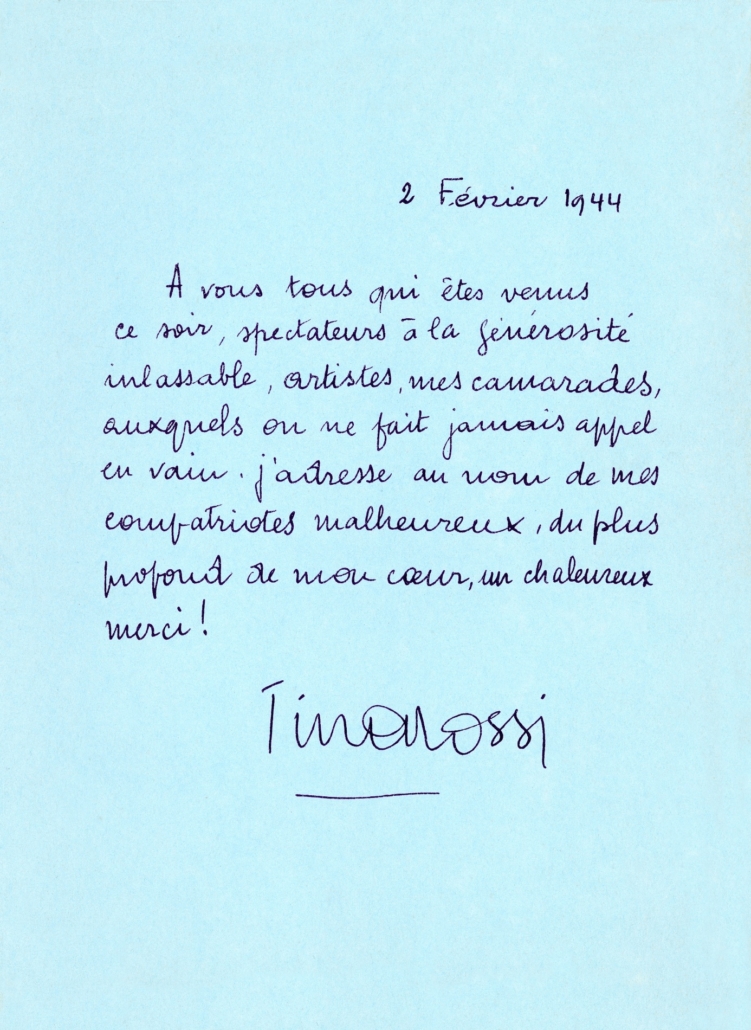 2 Février 1944
A vous tous qui êtes venus
ce soir, spectateurs à la générosité
inlassable, artistes, mes camarades,
auxquels on ne fait jamais appel
en vain. j'adresse au nom de mes
compatriotes malheureux, du plus
profond de mon cœur, un chaleureux
merci!
Tino Rossi